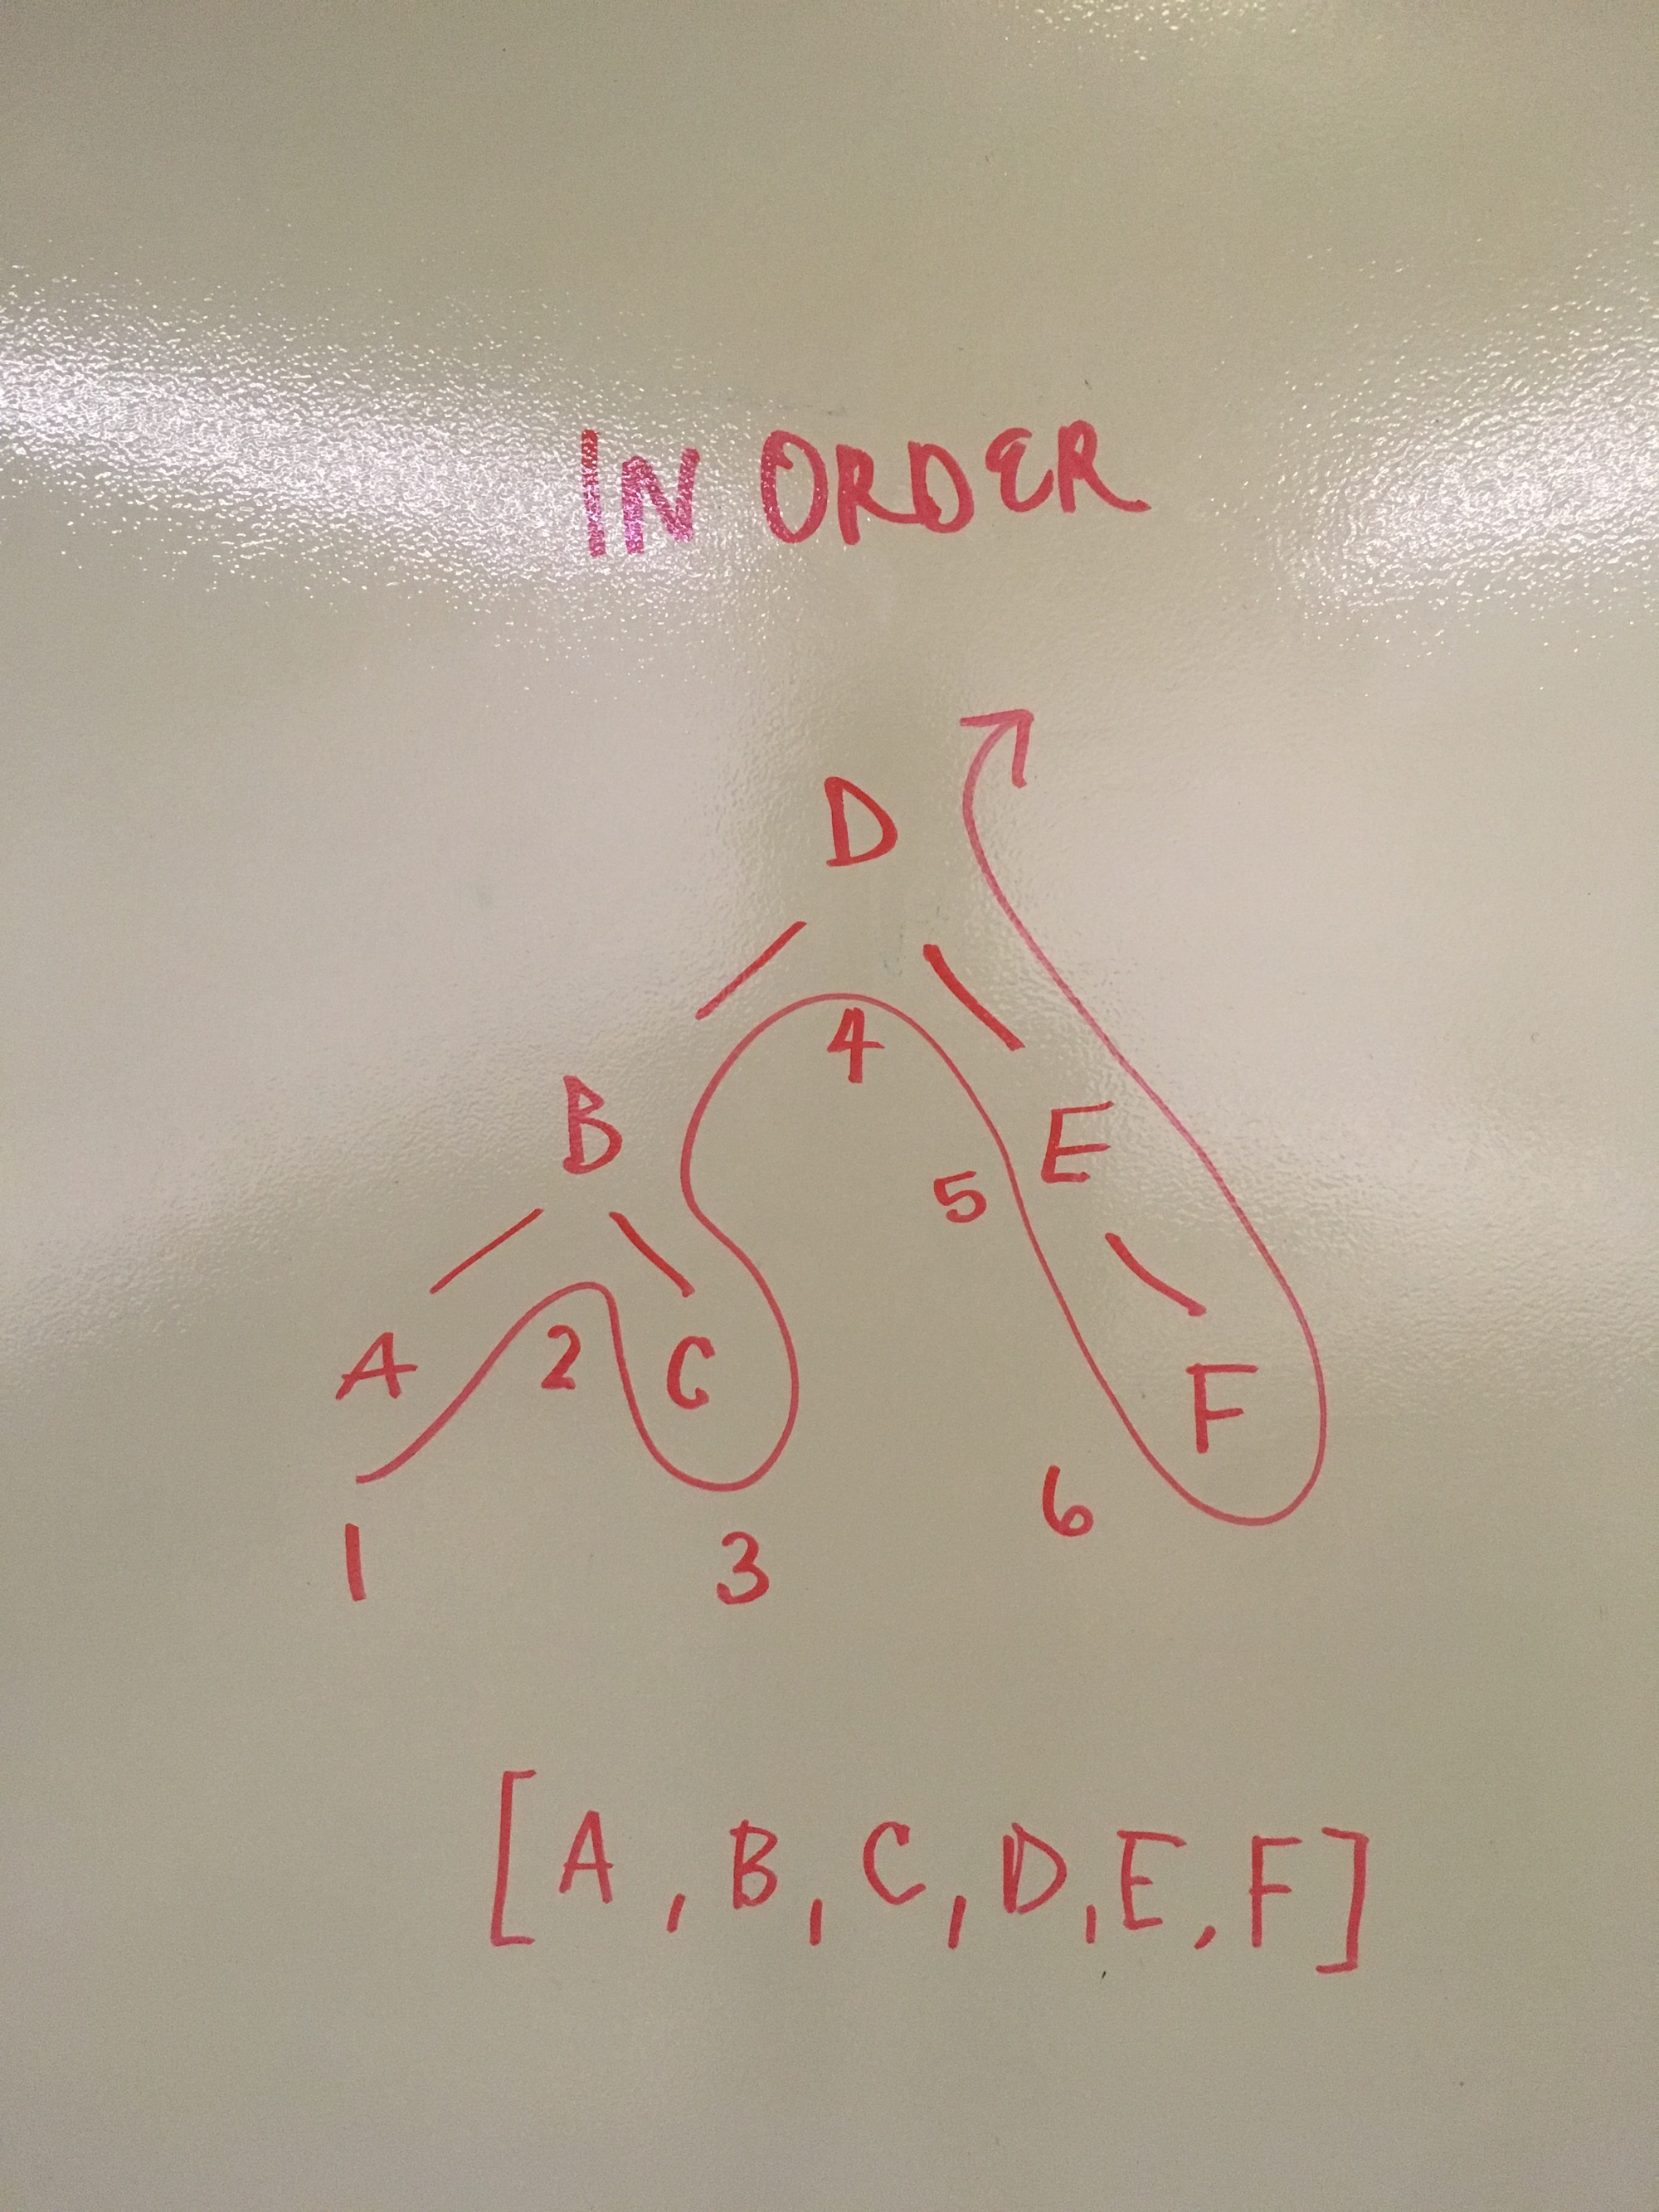 IN ORDER
D
4
B
E
5
A
2
C
F
6
1
3
[A, B, C, D, E, F]